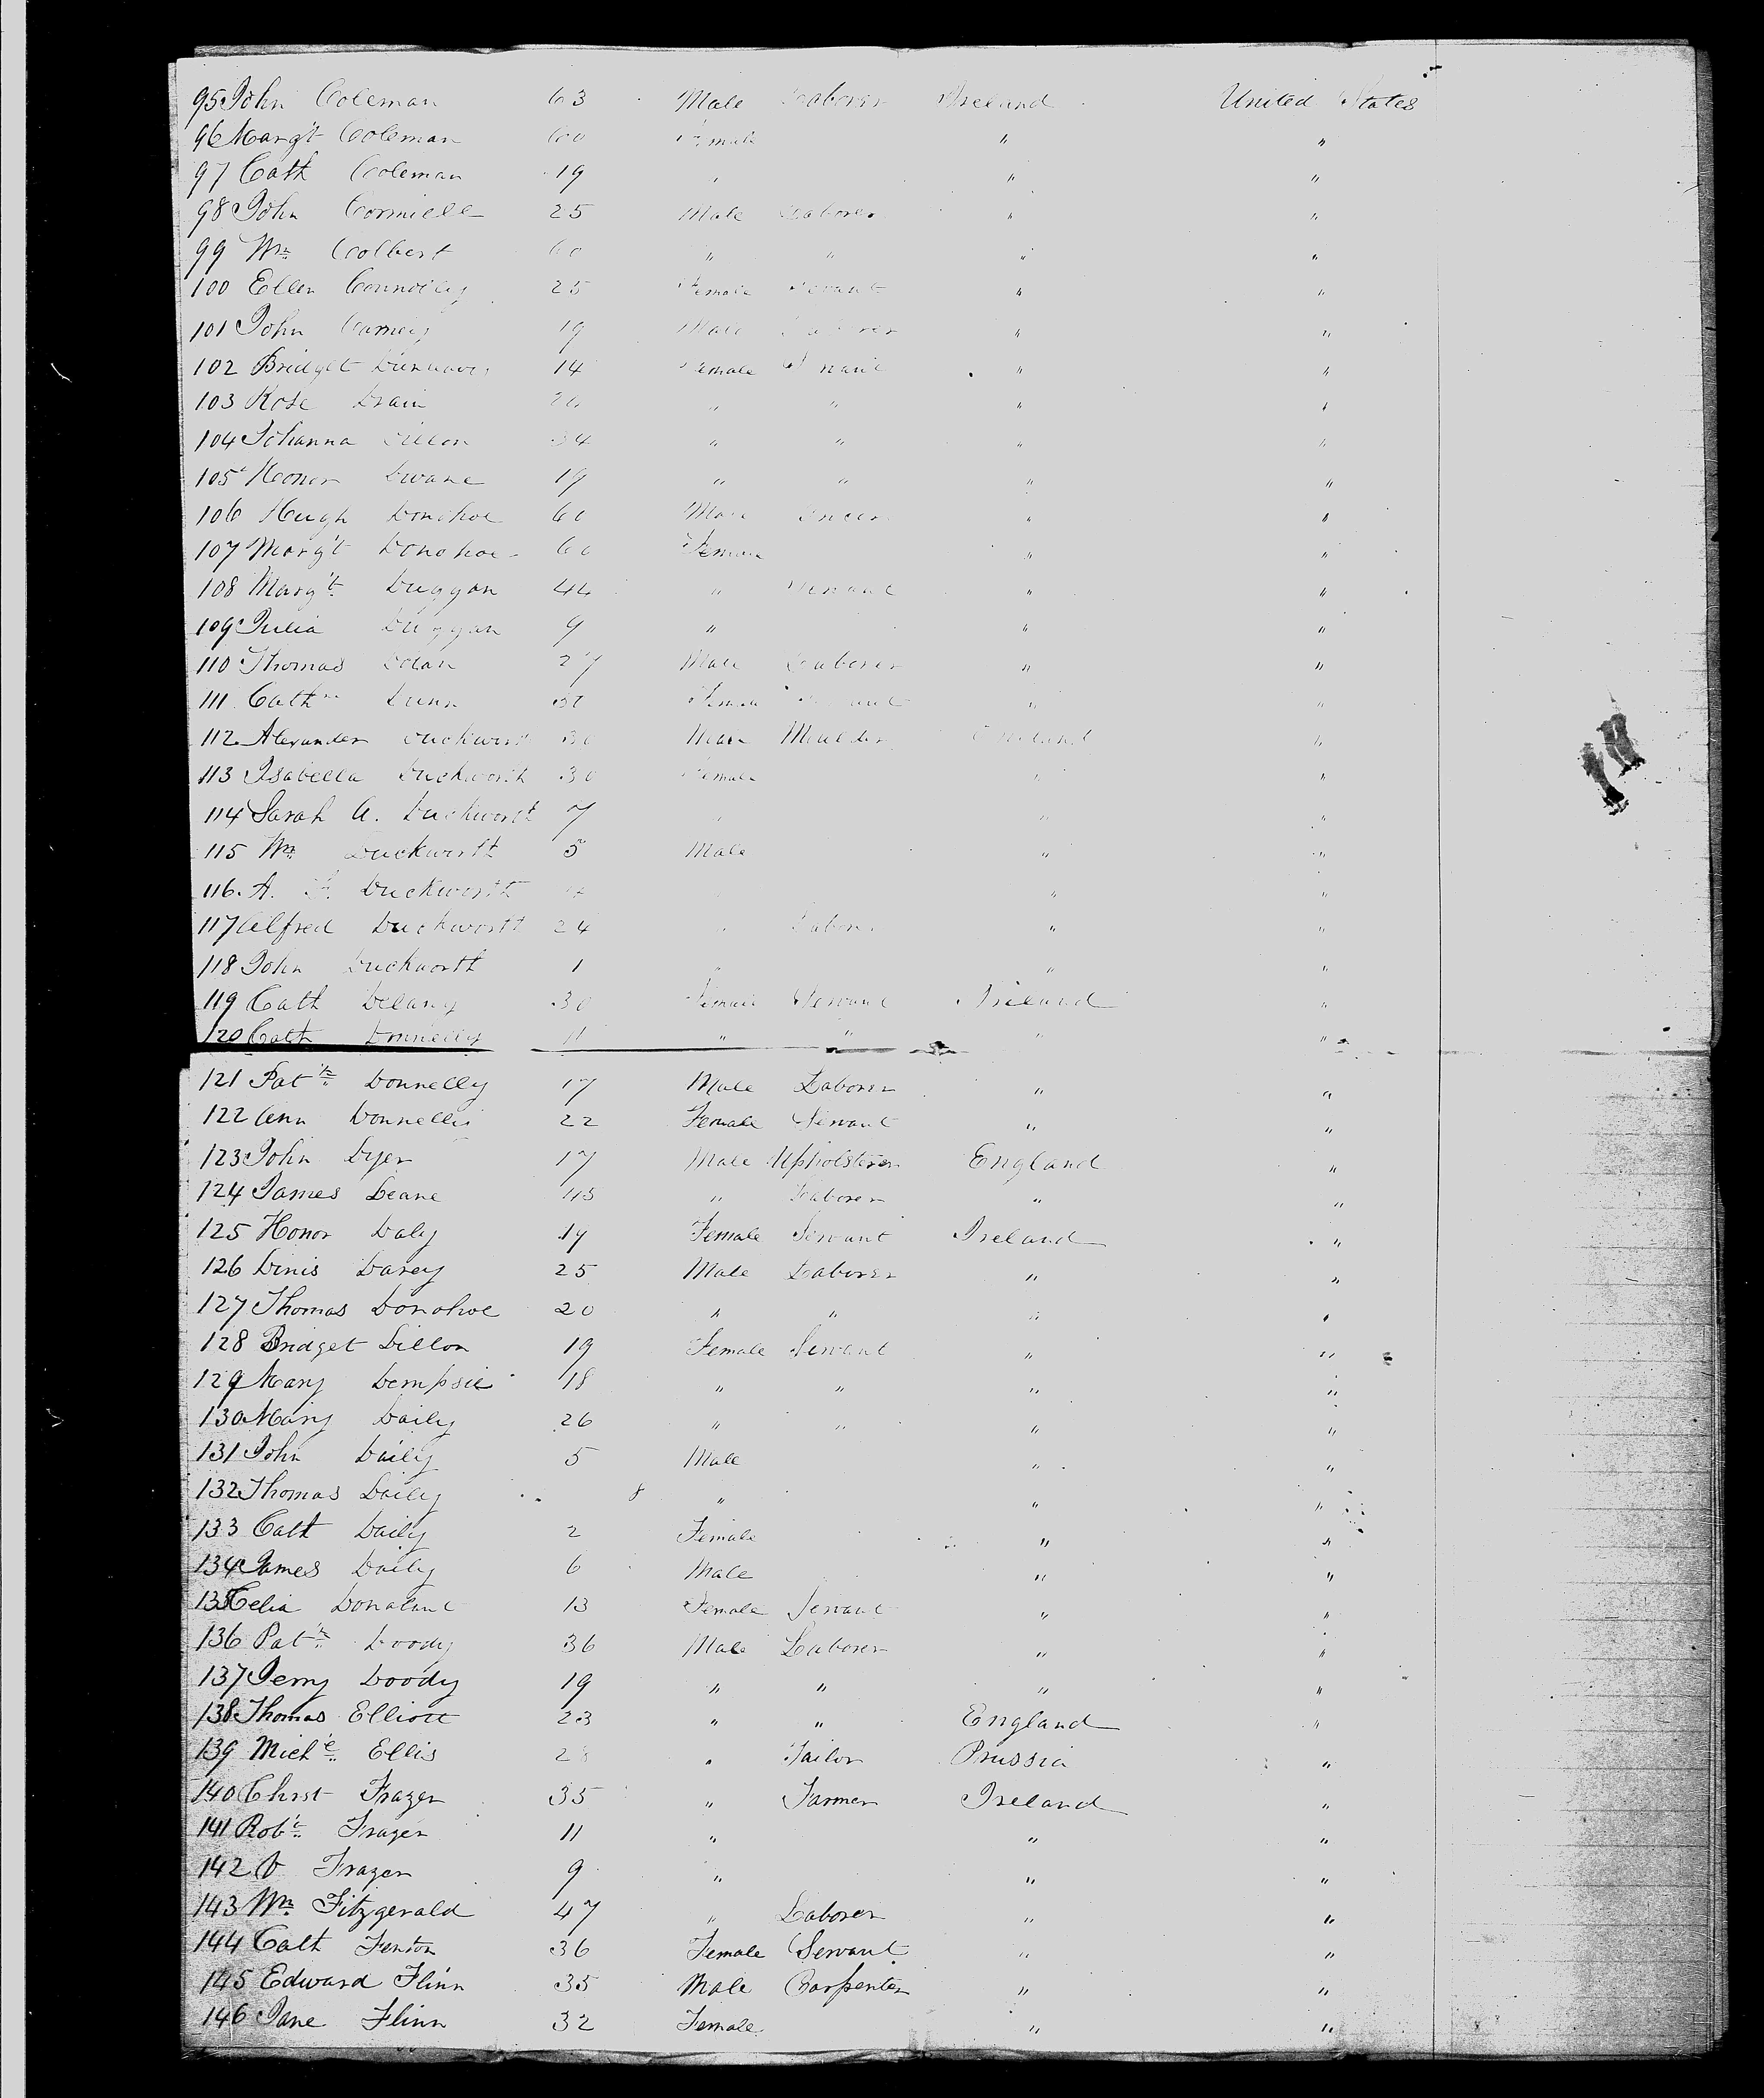 95 John Coleman 63 Male Laborer Ireland United States
96 Marg't Coleman 60 Female " "
97 Cath Coleman 19 " " "
98 John 25 Male Laborer " "
99 Wm Colbert 60 " " " "
100 Ellen Connolly 25 Female Servant " "
101 John 19 Male Laborer " "
102 Bridget 14 Female Servant " "
103 Rose Drain " " " "
104 Johanna Dillon 34 " " " "
105 Honor Dwane 19 " " " "
106 Hugh Donohoe 60 Male " "
107 Marg't Donohoe 60 Female " "
108 Marg't Duggan 44 " Servant " "
109 Julia Duggan 9 " " "
110 Thomas Dolan 27 Male Laborer " "
111 Cath Dunn Female Servant " "
112 Alexander Duckworth 30 Male Moulder England "
113 Isabella Duckworth 30 Female " "
114 Sarah A. Duckworth 7 " " "
115 Wm Duckworth 5 Male " "
116 A. Duckworth " "
117 Alfred Duckworth 24 " Laborer " "
118 John Duckworth 1 " " "
119 Cath Delany 30 Female Servant Ireland "
120 Cath Donnelly 11 " " " "
121 Patk Donnelly 17 Male Laborer " "
122 Ann Donnelly 22 Female Servant " "
123 John Dyer 17 Male Upholsterer England "
124 James Deane " Laborer " "
125 Honor Daly 19 Female Servant Ireland "
126 Dinis Darey 25 Male Laborer " "
127 Thomas Donohoe 20 " " " "
128 Bridget Dillon 19 Female Servant " "
129 Mary Dempsie 18 " " " "
130 Mary Daily 26 " " " "
131 John Daily 5 Male " "
132 Thomas Daily 8 " " "
133 Cath Daily 2 Female " "
134 James Daily 6 Male " "
135 Celia 13 Female Servant " "
136 Patk Doody 36 Male Laborer " "
137 Jerry Doody 19 " " " "
138 Thomas Elliott 23 " " England "
139 Mich'l Ellis 28 " Tailor Prussia "
140 Christ Frazer 35 " Farmer Ireland "
141 Robt Frazer 11 " " "
142 Frazer 9 " " "
143 Wm Fitzgerald 47 " Laborer " "
144 Cath Fenton 36 Female Servant " "
145 Edward Flinn 35 Male Carpenter " "
146 Jane Flinn 32 Female " "